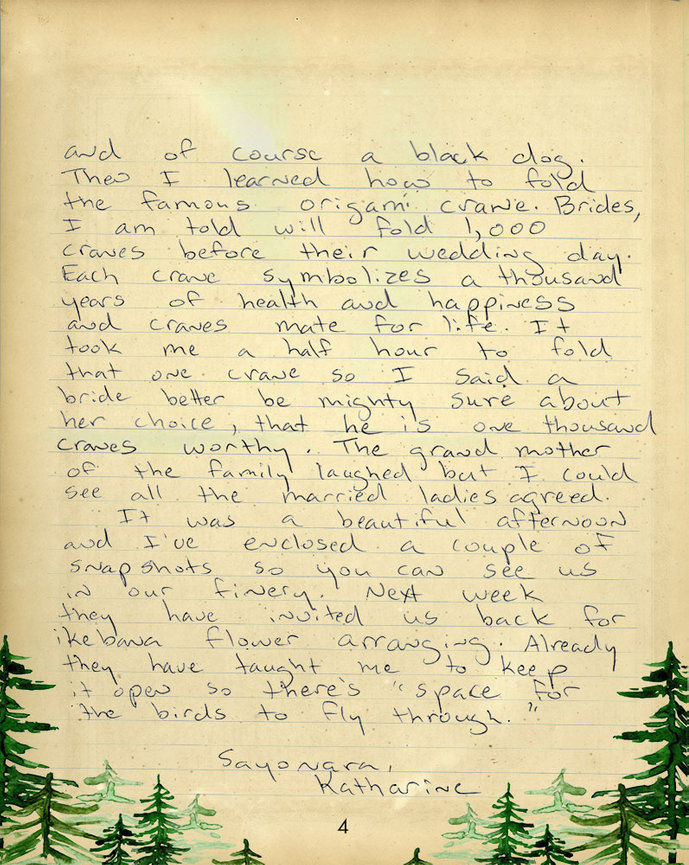 and of course a black dog.
Then I learned how to fold
the famous origami crane. Brides,
I am told will fold 1,000
cranes before their wedding day.
Each crane symbolizes a thousand
years of health and happiness
and cranes mate for life. It
took me a half hour to fold
that one crane so I said a
bride better be mighty sure about
her choice, that he is one thousand
cranes worthy. The grand mother
of the family laughed but I could
see all the married ladies agreed.
It was a beautiful afternoon
and I've enclosed a couple of
snapshots so you can see us
in our finery. Next week
they have invited us back for
ikebana flower arranging. Already
they have taught me to keep
it open so there's "space for
the birds to fly through."
Sayonara,
Katharine
4